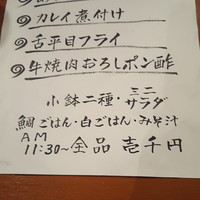 カレイ煮付け
舌平目フライ
牛焼肉おろしポン酢
小鉢二種・ミニサラダ
鯛ごはん・白ごはん・みそ汁
AM
11:30〜全品 壱千円